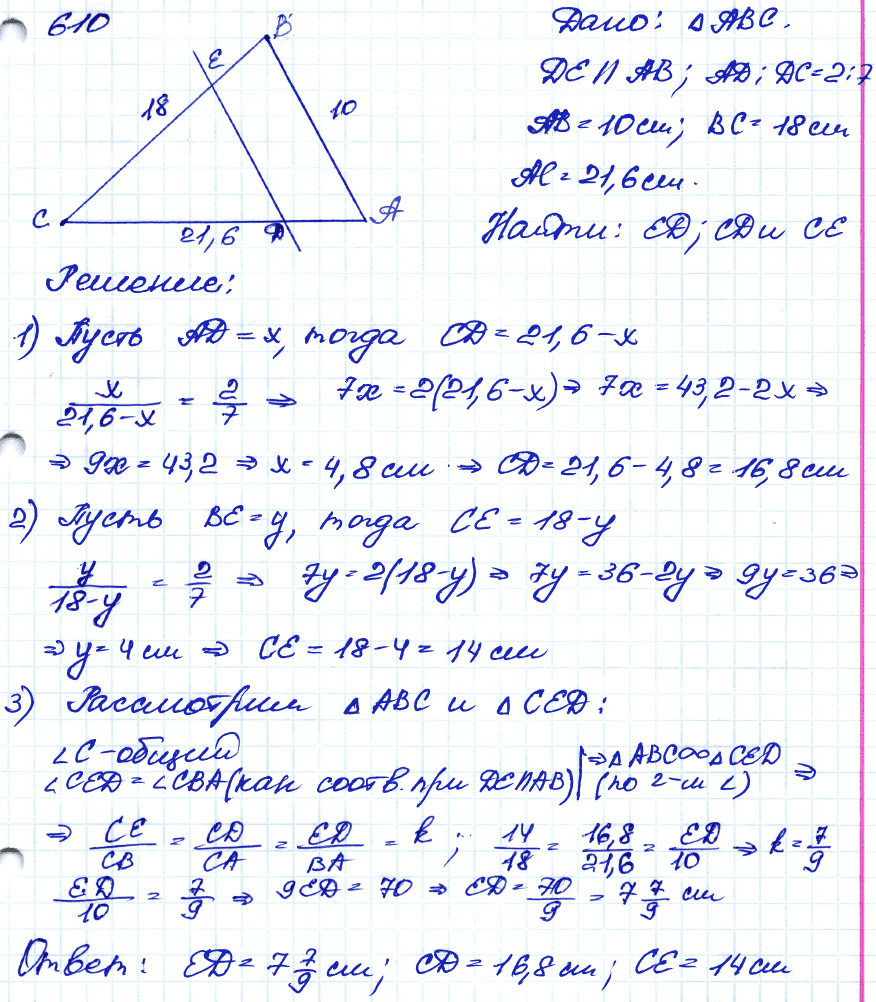 610
B
E
18
10
C
21,6
D
A
Дано: △ABC.
DE∥AB; AD:DC=2:7
AB=10см; BC=18см
AC=21,6см.
Найти: ED; CD и CE
Решение:
1) Пусть AD=x, тогда CD=21,6-x
x/(21,6-x) = 2/7 ⇒ 7x=2(21,6-x) ⇒ 7x=43,2-2x ⇒
⇒ 9x=43,2 ⇒ x=4,8см ⇒ CD=21,6-4,8=16,8см
2) Пусть BE=y, тогда CE=18-y
y/(18-y) = 2/7 ⇒ 7y=2(18-y) ⇒ 7y=36-2y ⇒ 9y=36 ⇒
⇒ y=4см ⇒ CE=18-4=14см
3) Рассмотрим △ABC и △CED:
∠C-общий | ⇒ △ABC∞△CED
∠CED=∠CBA(как соотв. при DE∥AB) | (по 2-м ∠) ⇒
⇒ CE/CB = CD/CA = ED/BA = k ; 14/18 = 16,8/21,6 = ED/10 ⇒ k=7/9
ED/10 = 7/9 ⇒ 9ED=70 ⇒ ED=70/9 = 7 7/9 см
Ответ: ED=7 7/9 см; CD=16,8см; CE=14см